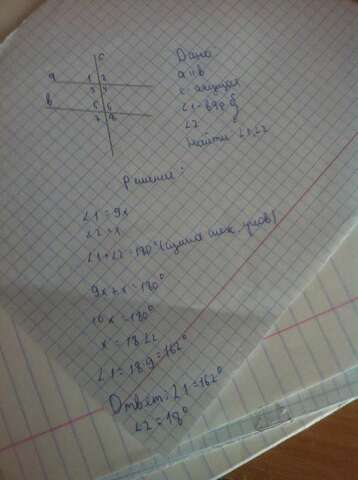 c
a 1 2
3 4
в 5 6
7 8
Дано
a II в
c - секущая
<1 - в 9р б
<2
Найти: <1, <2
Решение:
<1 = 9x
<2 = x
<1 + <2 = 180° (сумма смеж. углов)
9x + x = 180°
10x = 180°
x = 18 <2
<1 = 18·9 = 162°
Ответ: <1 = 162°
<2 = 18°